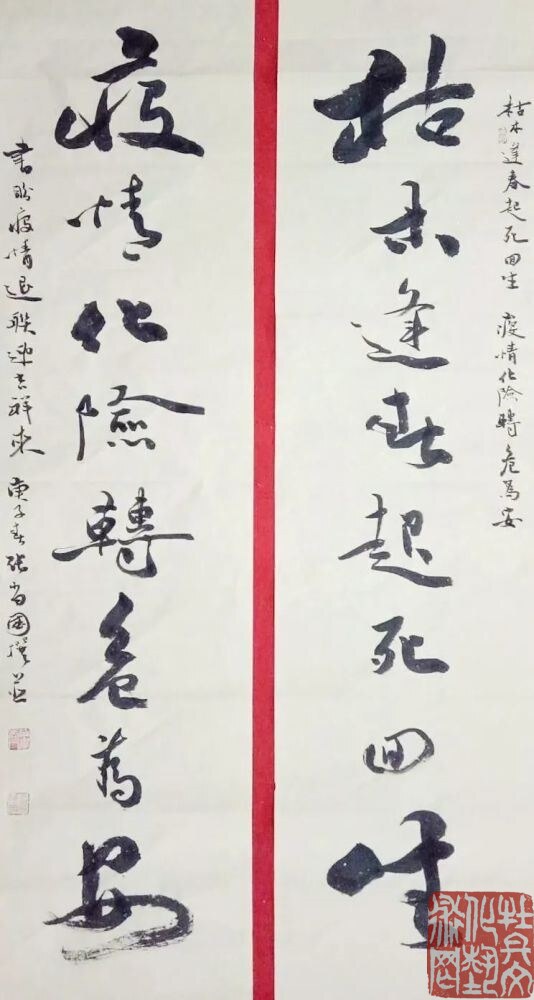 枯木逢春起死回生 疫情化險轉危為安
枯木逢春起死回生
疫情化險轉危為安
書盼疫情退聯迎吉祥來 庚子春張尚國撰並